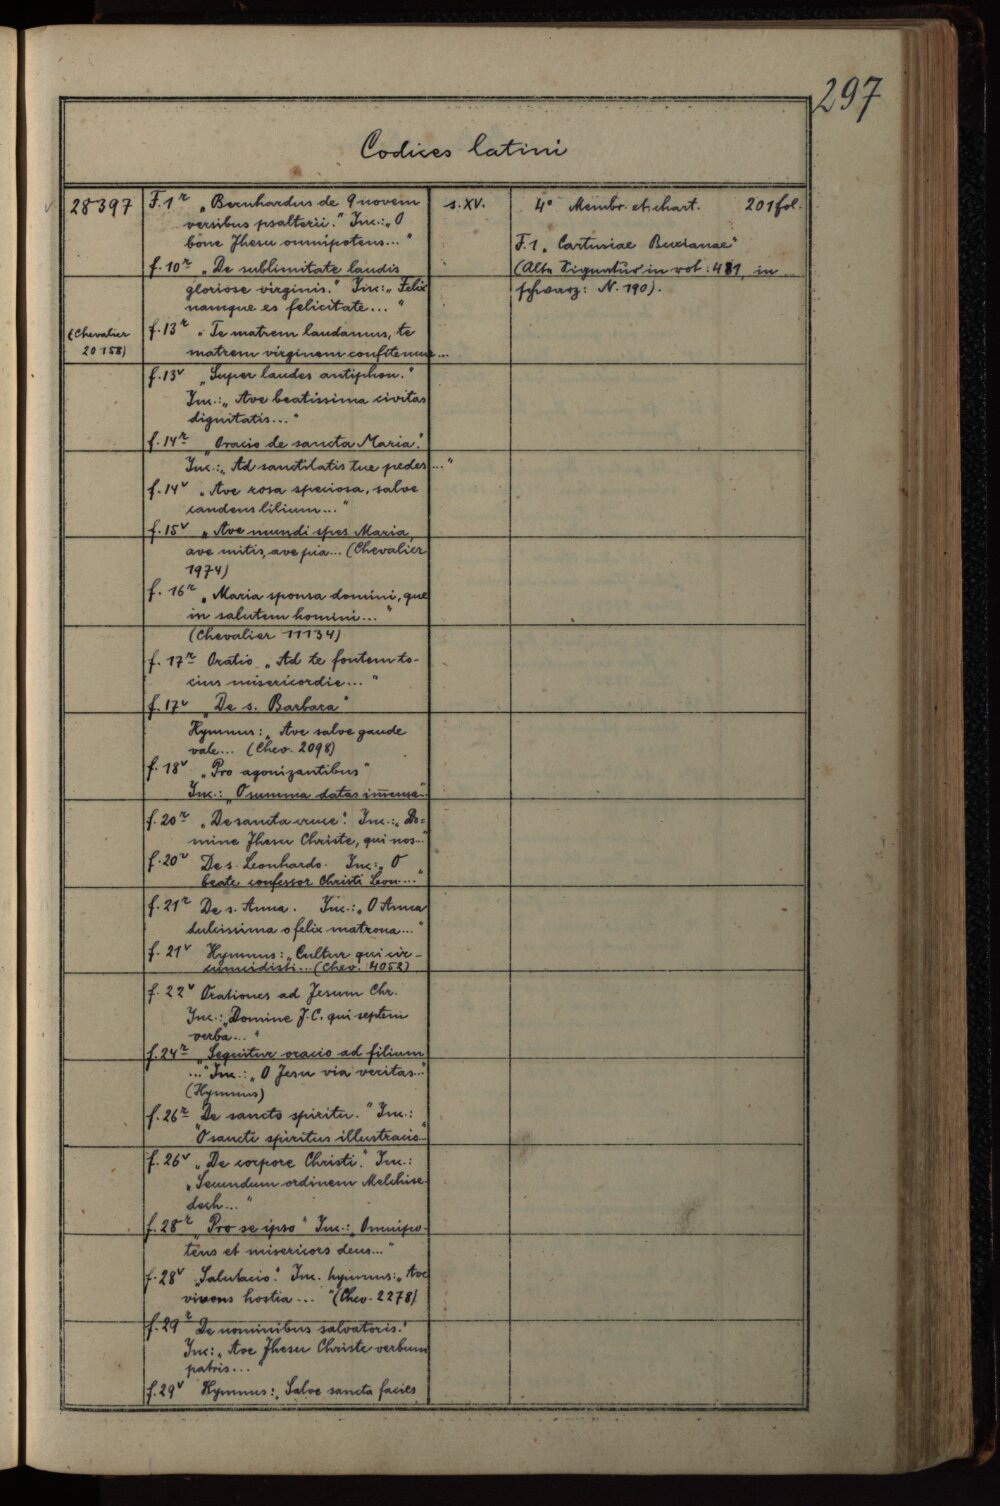 297
Codices latini
28397
F. 1r „Bernhardus de 9 novem
versibus psalterii." Inc.: „O
bone Jhesu omnipotens..."
f. 10r „De sublimitate laudis
gloriose virginis." Inc.: „Felix
namque es felicitate..."
(Chevalier
20158)
f. 13r „Te matrem laudamus, te
matrem virginem confitemur...
f. 13v „Super laudes antiphon."
Inc.: „Ave beatissima civitas
dignitatis..."
f. 14r „Oracio de sancta Maria."
Inc.: „Ad sanctitatis tue pedes..."
f. 14v „Ave rosa speciosa, salve
candens lilium..."
f. 15v „Ave mundi spes Maria,
ave mitis, ave pia... (Chevalier
1974)
f. 16r „Maria sponsa domini, que
in salutem homini..."
(Chevalier 11134)
f. 17r Oratio „Ad te fontem to-
cius misericordie..."
f. 17v „De s. Barbara"
Hymnus: „Ave salve gaude
vale... (Chev. 2098)
f. 18v „Pro agonizantibus"
Inc.: „O summa datas
f. 20r „De sancta cruce". Inc.: „Do=
mine Jhesu Christe, qui nos..."
f. 20v De s. Leonhardo. Inc.: „O
beate confessor Christi Leon..."
f. 21r De s. Anna. Inc.: „O Anna
dulcissima o felix matrona..."
f. 21v Hymnus: „Cultur qui cir-
cumcidisti... (Chev. 4052)
f. 22v Orationes ad Jesum Chr.
Inc.: „Domine J.C. qui septem
verba..."
f. 24r „Sequitur oracio ad filium
..." Inc.: „O Jesu via veritas..."
(Hymnus)
f. 26r „De sancto spiritu." Inc.:
„O sancti spiritus illustracio..."
f. 26v „De corpore Christi." Inc.:
„Secundum ordinem Melchise-
dech..."
f. 28r „Pro se ipso" Inc.: „Omnipo-
tens et misericors deus..."
f. 28v „Salutacio." Inc. hymnus: „Ave
vivens hostia..." (Chev. 2278)
f. 29r „De nominibus salvatoris."
Inc.: „Ave Jhesu Christe verbum
patris..."
f. 29v Hymnus: „Salve sancta facies
s. XV.
4° Membr. et chart. 201 fol.
F. 1 „Cartusiae Buxianae"
(Alte Signatur in rot: 481, in
schwarz: N. 190).